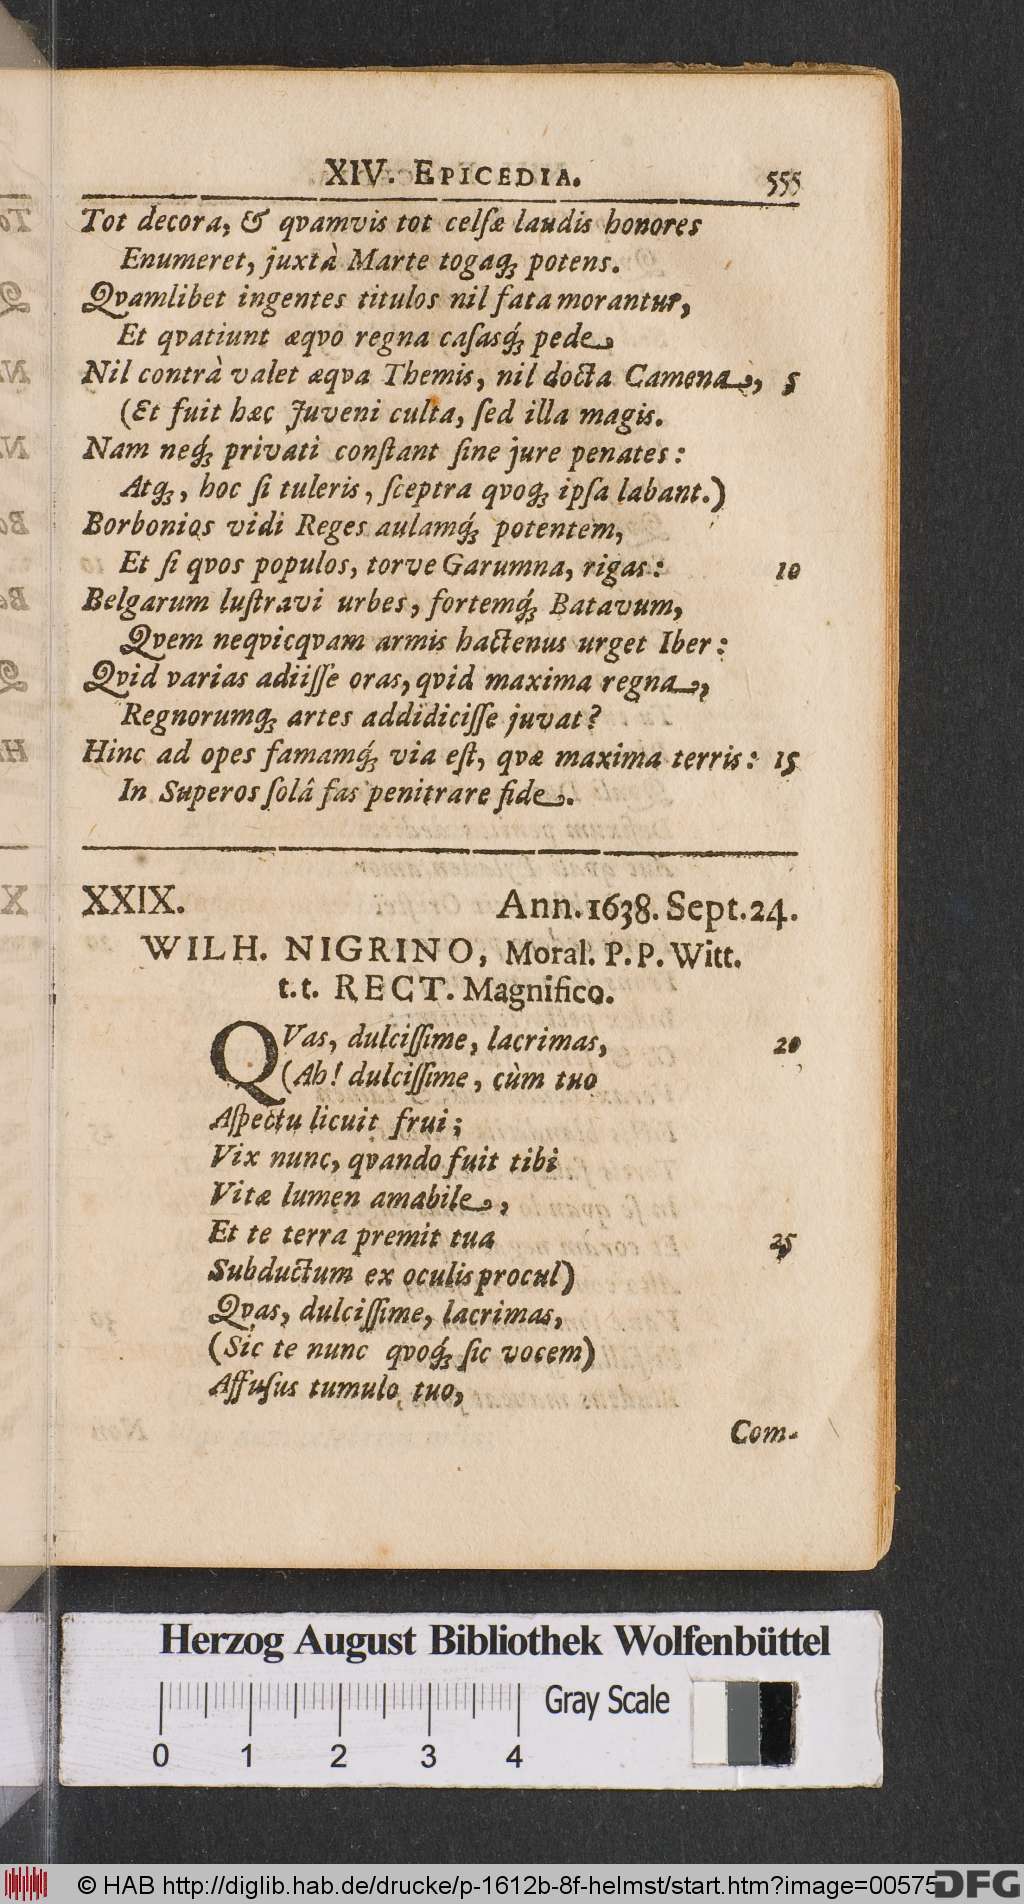 XIV. EPICEDIA. 555
Tot decora, & qvamvis tot celſæ laudis honores
Enumeret, juxtà Marte togaq́ꝫ potens.
Qvamlibet ingentes titulos nil fata morantur,
Et qvatiunt æqvo regna caſasq́ꝫ pede
Nil contrà valet æqva Themis, nil docta Camena, 5
(Et fuit hæc Juveni culta, ſed illa magis.
Nam neq́ꝫ privati conſtant ſine jure penates:
Atqꝫ, hoc ſi tuleris, ſceptra qvoqꝫ ipſa labant.)
Borbonios vidi Reges aulamq́ꝫ potentem,
Et ſi qvos populos, torve Garumna, rigas: 10
Belgarum luſtravi urbes, fortemq́ꝫ Batavum,
Qvem neqvicqvam armis hactenus urget Iber:
Qvid varias adiiſſe oras, qvid maxima regna,
Regnorumqꝫ artes addidiciſſe juvat?
Hinc ad opes famamq́ꝫ via eſt, qvæ maxima terris: 15
In Superos ſolâ fas penitrare fide.
XXIX. Ann. 1638. Sept. 24.
WILH. NIGRINO, Moral. P. P. Witt.
t. t. RECT. Magnifico.
QVas, dulciſſime, lacrimas, 20
(Ah! dulciſſime, cùm tuo
Aſpectu licuit frui;
Vix nunc, qvando fuit tibi
Vitæ lumen amabile,
Et te terra premit tua 25
Subductum ex oculis procul)
Qvas, dulciſſime, lacrimas,
(Sic te nunc qvoq́ꝫ ſic vocem)
Affuſus tumulo tuo,
Com-
Herzog August Bibliothek Wolfenbüttel
Gray Scale
0 1 2 3 4
© HAB http://diglib.hab.de/drucke/p-1612b-8f-helmst/start.htm?image=00575
DFG